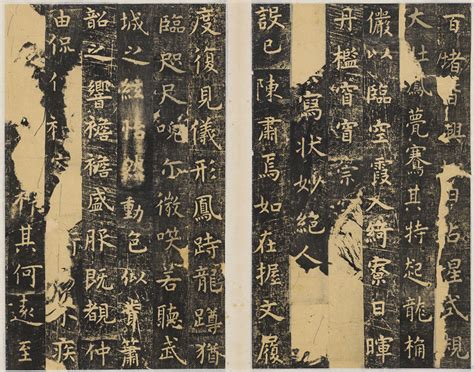 百堵皆興日占星式規
大壯鳳甍騫其特起龍桷
儼以臨空霞入綺寮日暉
丹檻窅窅
寫狀妙絕人
設已陳肅焉如在握文履
度復見儀形鳳跱龍蹲猶
臨咫尺尒微若聽武
城之絃怡然動色似簫
韶之響襜襜盛服既覩仲
由侃不疾
神其何遠至